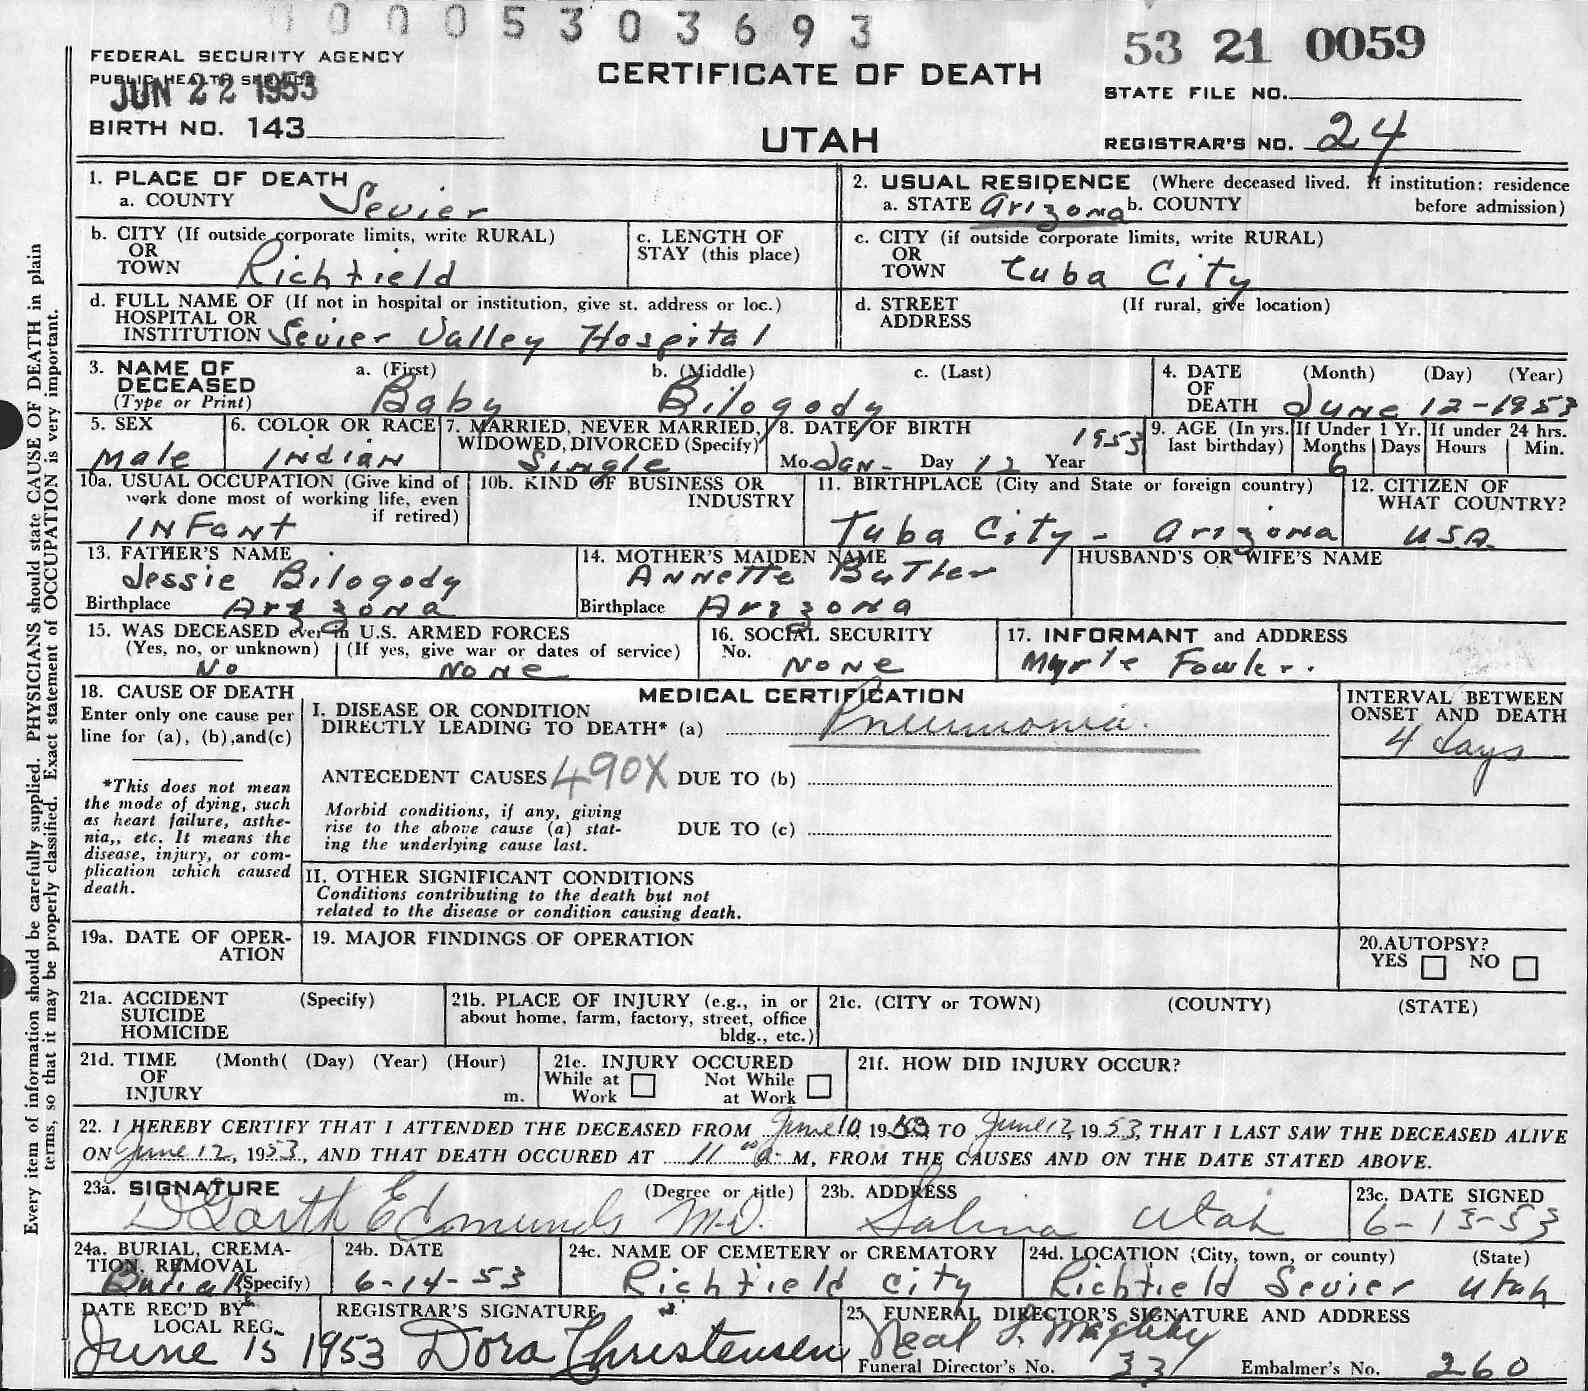 0005303693
53 21 0059
FEDERAL SECURITY AGENCY
PUBLIC HEALTH SERVICE
JUN 22 1953
CERTIFICATE OF DEATH
STATE FILE NO.
BIRTH NO. 143
UTAH
REGISTRAR'S NO. 24
1. PLACE OF DEATH
a. COUNTY Sevier
2. USUAL RESIDENCE (Where deceased lived. If institution: residence before admission)
a. STATE Arizona b. COUNTY
b. CITY (If outside corporate limits, write RURAL)
OR
TOWN Richfield
c. LENGTH OF
STAY (this place)
c. CITY (if outside corporate limits, write RURAL)
OR
TOWN Tuba City
d. FULL NAME OF (If not in hospital or institution, give st. address or loc.)
HOSPITAL OR
INSTITUTION Sevier Valley Hospital
d. STREET (If rural, give location)
ADDRESS
3. NAME OF DECEASED
(Type or Print)
a. (First) b. (Middle) c. (Last)
Baby Bilogody
4. DATE OF DEATH (Month) (Day) (Year)
June 12-1953
5. SEX
Male
6. COLOR OR RACE
Indian
7. MARRIED, NEVER MARRIED,
WIDOWED, DIVORCED (Specify)
Single
8. DATE OF BIRTH
Mo. Jan- Day 12 Year 1953
9. AGE (In yrs. last birthday)
If Under 1 Yr.
Months Days
6
If under 24 hrs.
Hours Min.
10a. USUAL OCCUPATION (Give kind of
work done most of working life, even
if retired)
INFant
10b. KIND OF BUSINESS OR
INDUSTRY
11. BIRTHPLACE (City and State or foreign country)
Tuba City - Arizona
12. CITIZEN OF
WHAT COUNTRY?
USA
13. FATHER'S NAME
Jessie Bilogody
Birthplace Arizona
14. MOTHER'S MAIDEN NAME
Annette Butler
Birthplace Arizona
HUSBAND'S OR WIFE'S NAME
15. WAS DECEASED ever in U.S. ARMED FORCES
(Yes, no, or unknown) (If yes, give war or dates of service)
No None
16. SOCIAL SECURITY
No.
None
17. INFORMANT and ADDRESS
Myrle Fowler.
18. CAUSE OF DEATH
Enter only one cause per
line for (a), (b),and(c)
*This does not mean
the mode of dying, such
as heart failure, asthe-
nia,, etc. It means the
disease, injury, or com-
plication which caused
death.
MEDICAL CERTIFICATION
I. DISEASE OR CONDITION
DIRECTLY LEADING TO DEATH* (a) Pneumonia.
ANTECEDENT CAUSES 490X DUE TO (b)
Morbid conditions, if any, giving
rise to the above cause (a) stat-
ing the underlying cause last.
DUE TO (c)
II. OTHER SIGNIFICANT CONDITIONS
Conditions contributing to the death but not
related to the disease or condition causing death.
INTERVAL BETWEEN
ONSET AND DEATH
4 days
19a. DATE OF OPER-
ATION
19. MAJOR FINDINGS OF OPERATION
20.AUTOPSY?
YES NO
21a. ACCIDENT (Specify)
SUICIDE
HOMICIDE
21b. PLACE OF INJURY (e.g., in or
about home, farm, factory, street, office
bldg., etc.)
21c. (CITY or TOWN) (COUNTY) (STATE)
21d. TIME (Month( (Day) (Year) (Hour)
OF
INJURY m.
21e. INJURY OCCURED
While at Work Not While at Work
21f. HOW DID INJURY OCCUR?
22. I HEREBY CERTIFY THAT I ATTENDED THE DECEASED FROM June 10, 1953, TO June 12, 1953, THAT I LAST SAW THE DECEASED ALIVE
ON June 12, 1953, AND THAT DEATH OCCURED AT 11 00 a. M, FROM THE CAUSES AND ON THE DATE STATED ABOVE.
23a. SIGNATURE (Degree or title)
D Garth Edmunds M.D.
23b. ADDRESS
Salina Utah
23c. DATE SIGNED
6-13-53
24a. BURIAL, CREMA-
TION, REMOVAL
Burial (Specify)
24b. DATE
6-14-53
24c. NAME OF CEMETERY or CREMATORY
Richfield City
24d. LOCATION (City, town, or county) (State)
Richfield Sevier Utah
DATE REC'D BY
LOCAL REG.
June 15 1953
REGISTRAR'S SIGNATURE
Dora Christensen
25. FUNERAL DIRECTOR'S SIGNATURE AND ADDRESS
Neal S. Magleby
Funeral Director's No. 33 Embalmer's No. 260
Every item of information should be carefully supplied. PHYSICIANS should state CAUSE OF DEATH in plain
terms, so that it may be properly classified. Exact statement of OCCUPATION is very important.